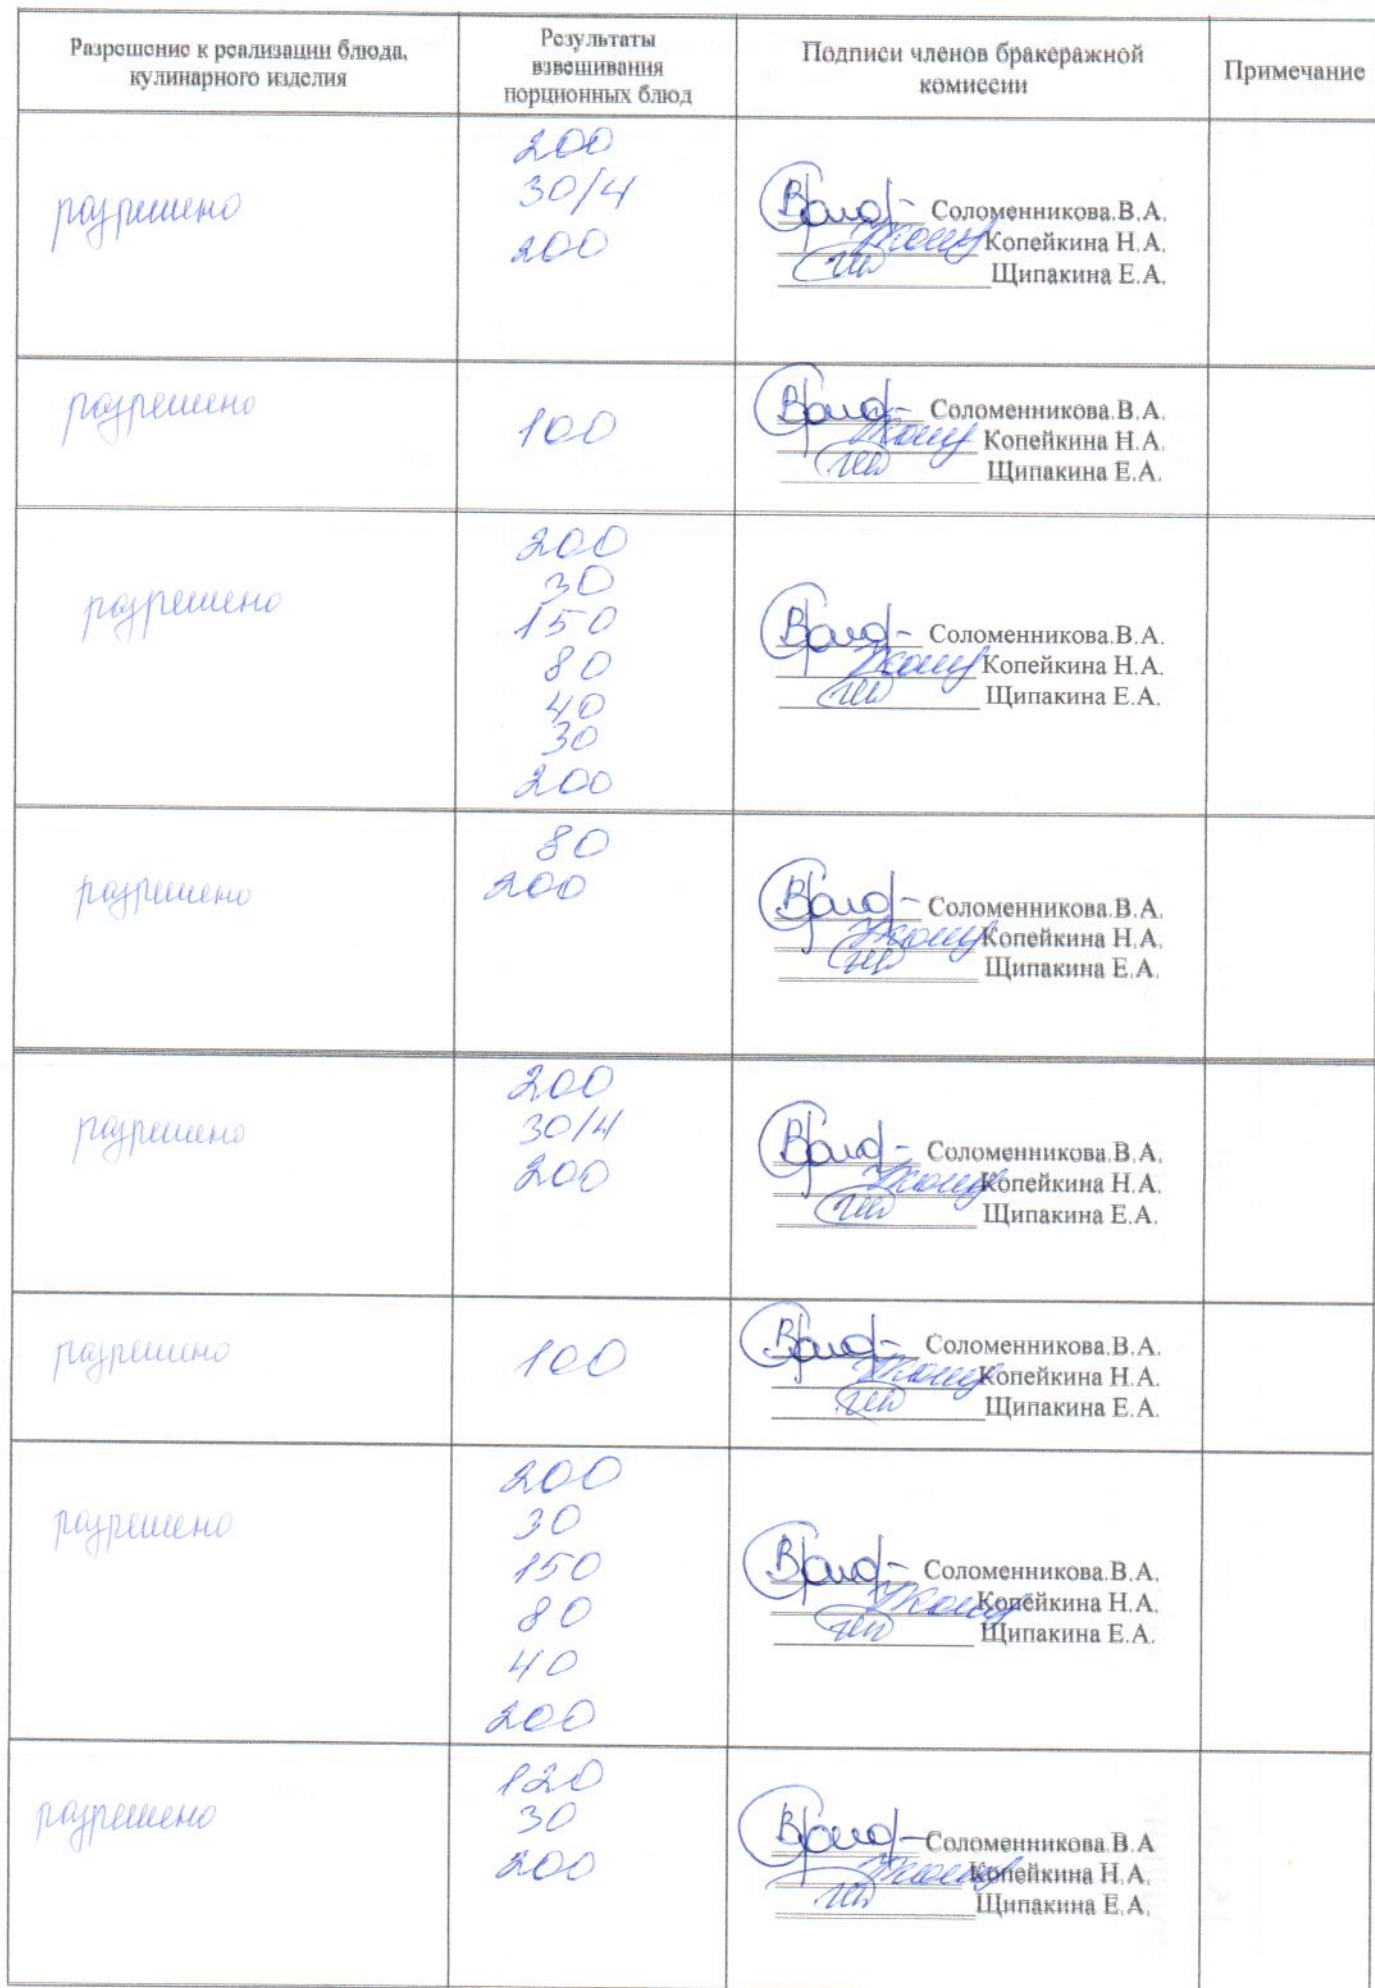 Разрешение к реализации блюда,
кулинарного изделия
Результаты
взвешивания
порционных блюд
Подписи членов бракеражной
комиссии
Примечание
разрешено
200
30/4
200
Соломенникова.В.А.
Копейкина Н.А.
Щипакина Е.А.
разрешено
100
Соломенникова.В.А.
Копейкина Н.А.
Щипакина Е.А.
разрешено
200
30
150
80
40
30
200
Соломенникова.В.А.
Копейкина Н.А.
Щипакина Е.А.
разрешено
80
200
Соломенникова.В.А.
Копейкина Н.А.
Щипакина Е.А.
разрешено
200
30/4
200
Соломенникова.В.А.
Копейкина Н.А.
Щипакина Е.А.
разрешено
100
Соломенникова.В.А.
Копейкина Н.А.
Щипакина Е.А.
разрешено
200
30
150
80
40
200
Соломенникова.В.А.
Копейкина Н.А.
Щипакина Е.А.
разрешено
120
30
200
Соломенникова.В.А
Копейкина Н.А.
Щипакина Е.А.